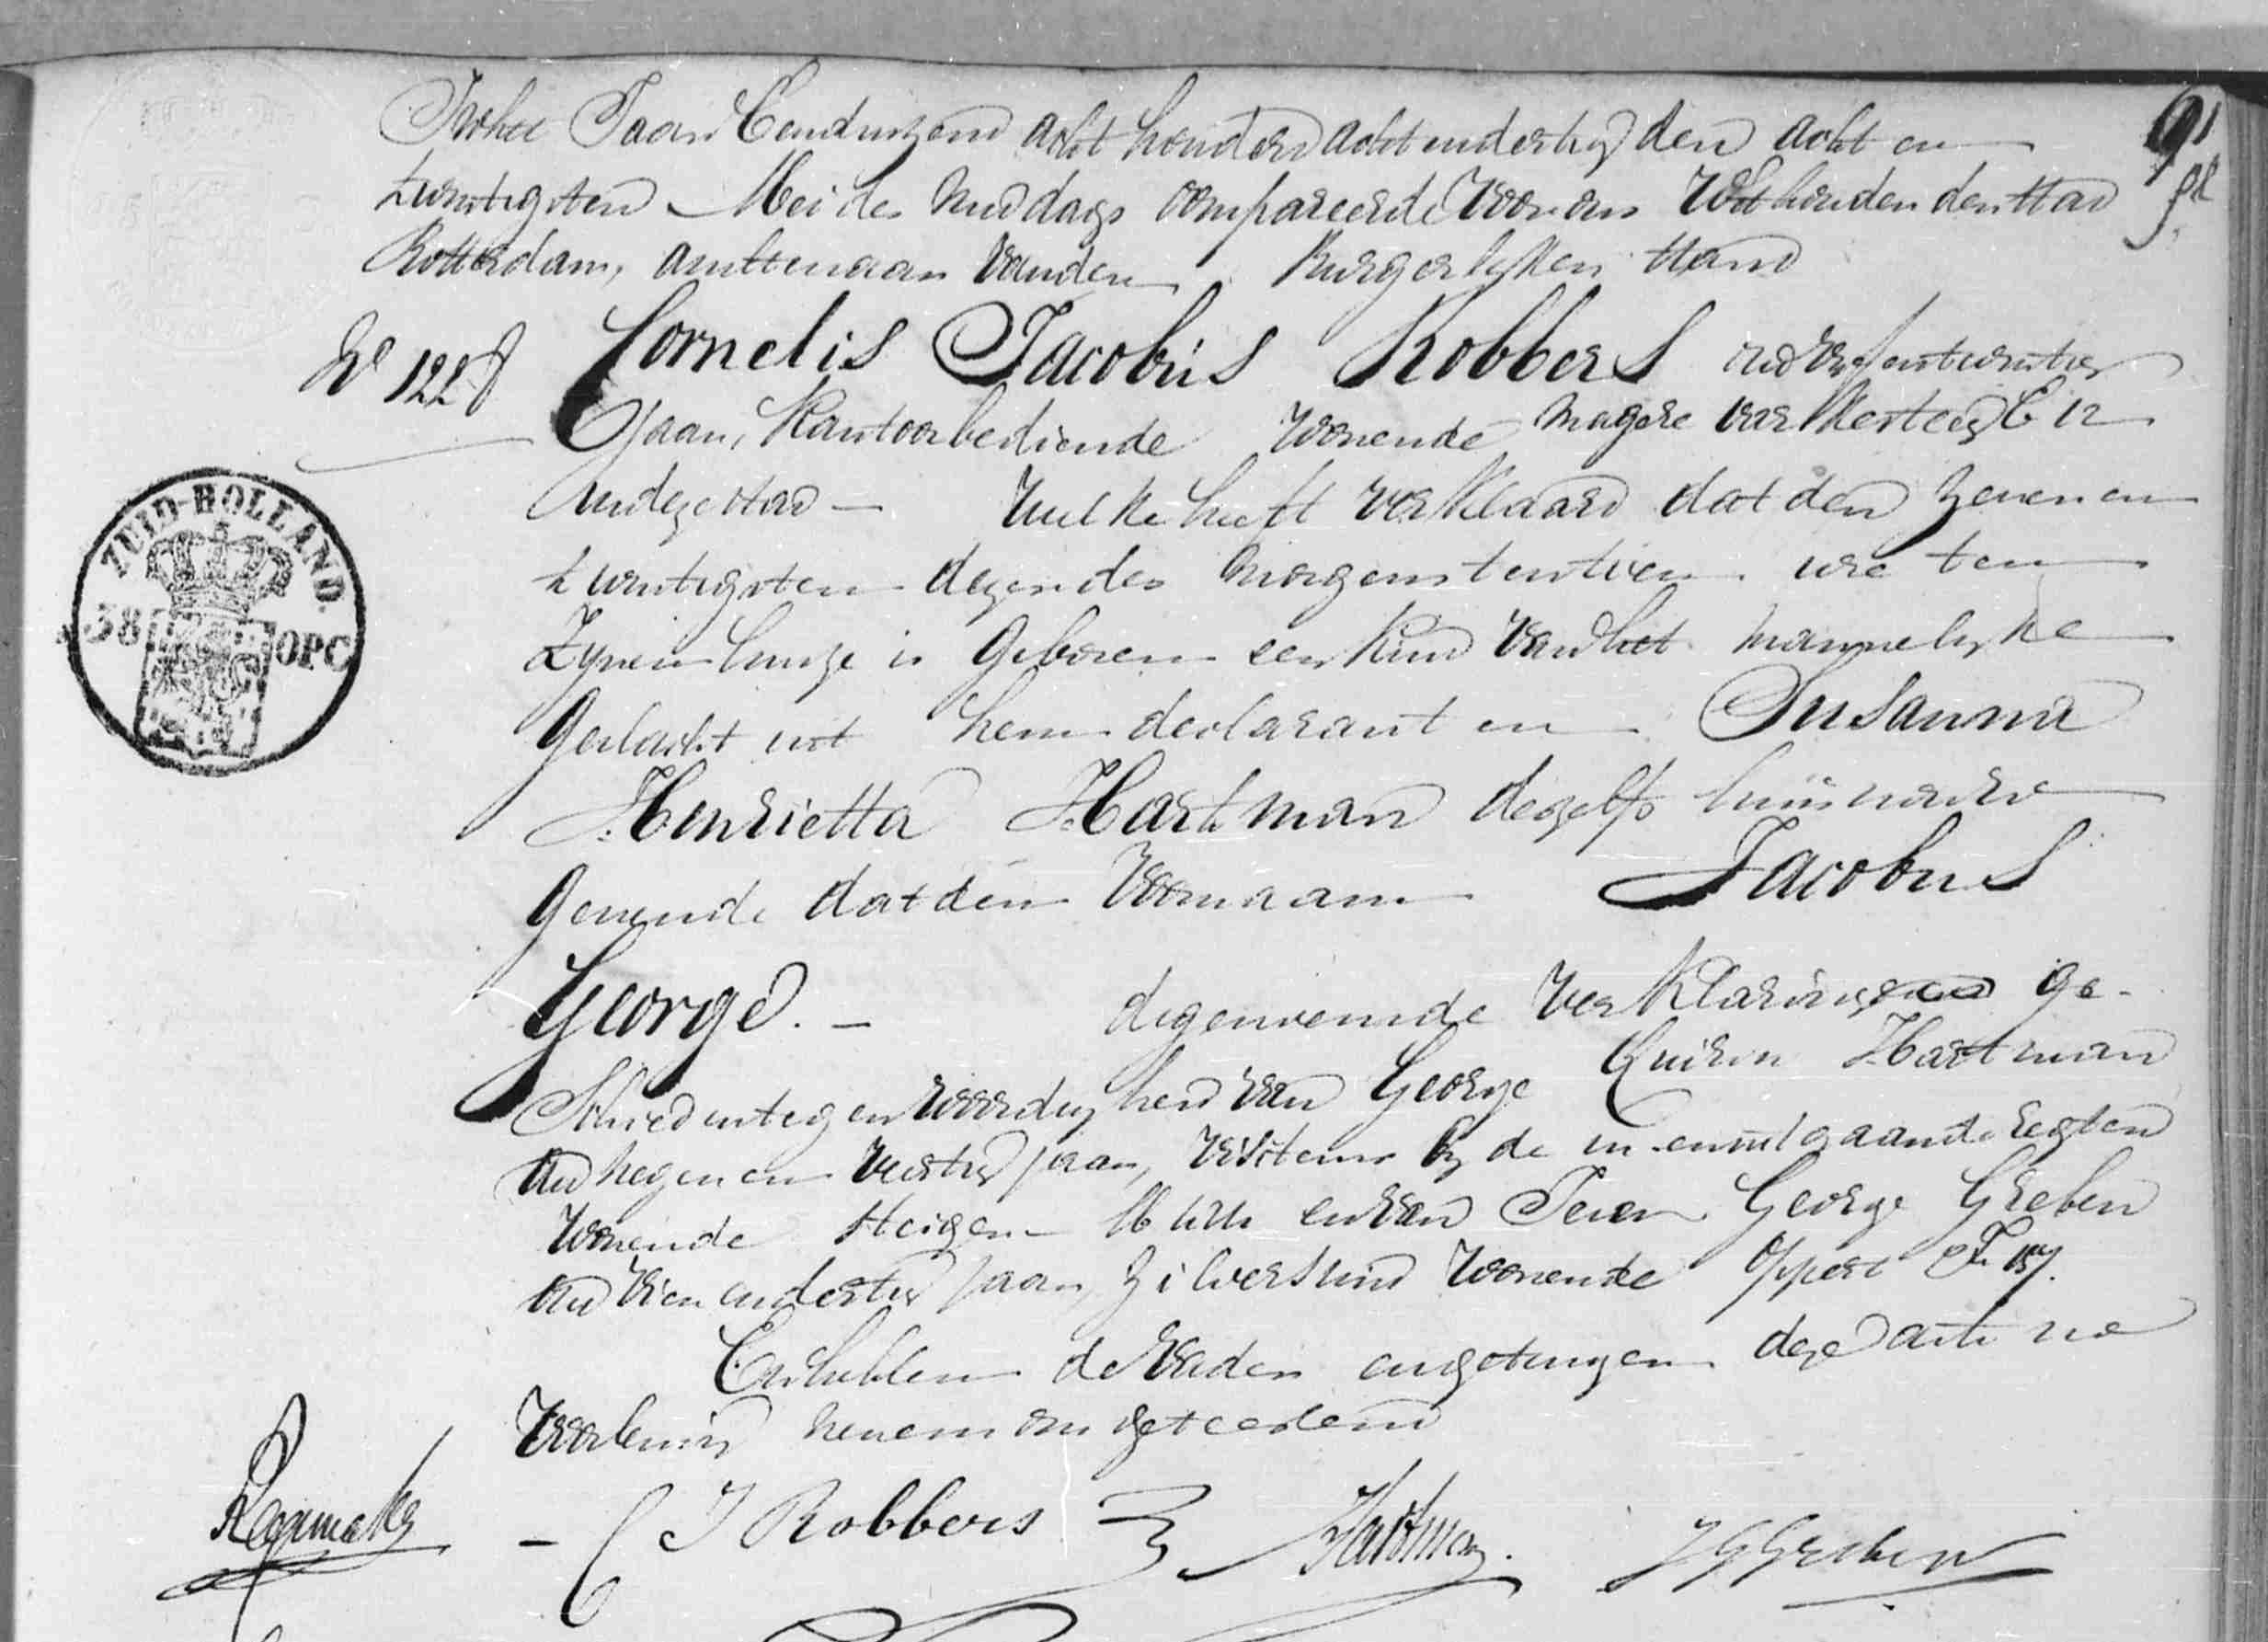 In het Jaar Eenduizend acht honderd achtendertig den acht en
twintigsten Mei des middags compareerde voor ons Wethouder der stad
Rotterdam, ambtenaar van den Burgerlyken stand
No 1228 Cornelis Jacobus Robbers oud vyfentwintig
Jaar, Kantoorbediende wonende magere varkensteeg C 12
in deze stad — welke heeft verklaard dat den zeven en
twintigsten dezer des morgens ten tien ure ten
zynen huize is geboren een kind van het mannelyke
geslacht uit hem declarant en Susanna
Henrietta Hartman deszelfs huisvrouw
gevende dat den voornaam Jacobus
George. — dezevoornoemde verklaringen ge-
schied in tegenwoordigheid van George Hartman
oud negen en veertig jaar, by de in en uitgaande regten
wonende Steiger en van George Greben
oud vier en dertig jaar, zilversmid wonende Oppert
En hebben de vader en getuigen deze acte na
voorlezing nevens ons geteekend
C J Robbers Hartman J G Greben
ZUID-HOLLAND.
38 OPC
91